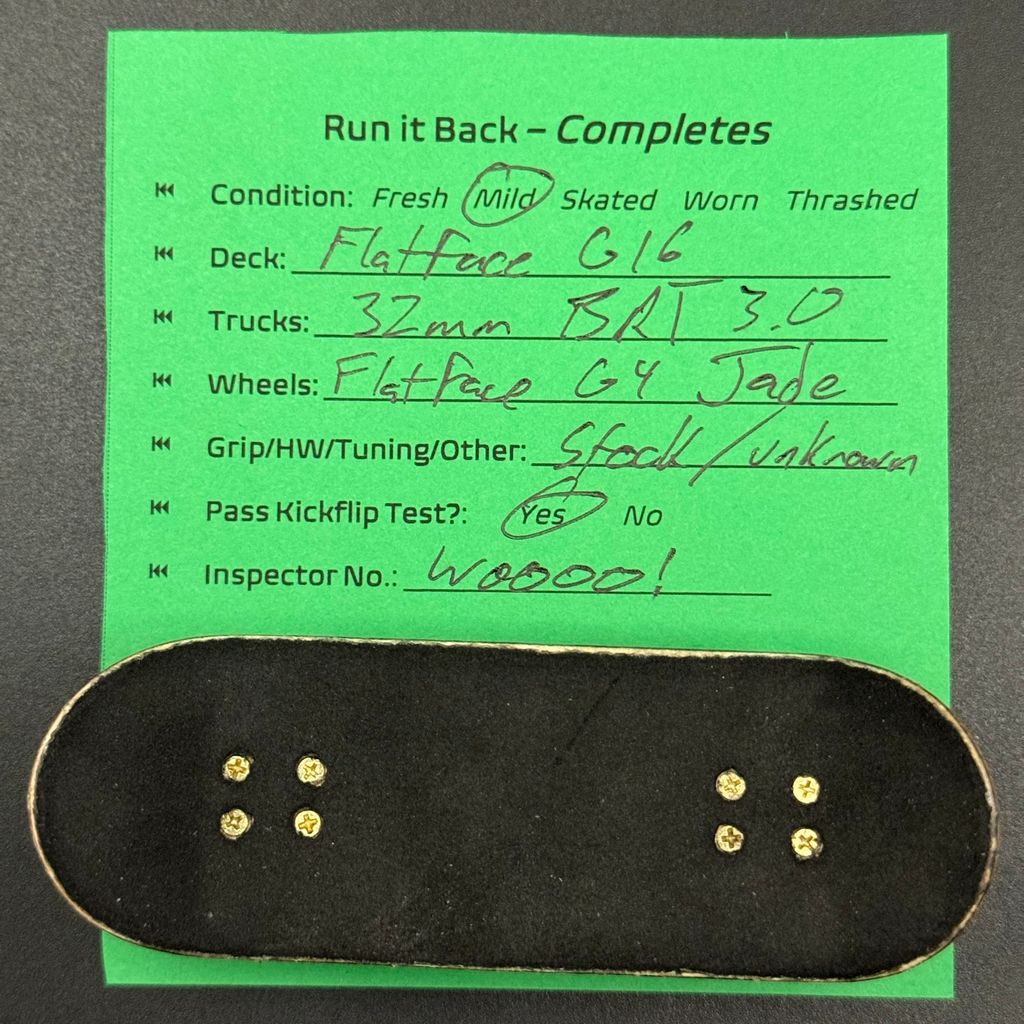 Run it Back – Completes
Condition: Fresh Mild Skated Worn Thrashed
Deck: Flatface G16
Trucks: 32mm BRT 3.0
Wheels: Flatface G4 Jade
Grip/HW/Tuning/Other: Stock/unknown
Pass Kickflip Test?: Yes No
Inspector No.: Woooo!